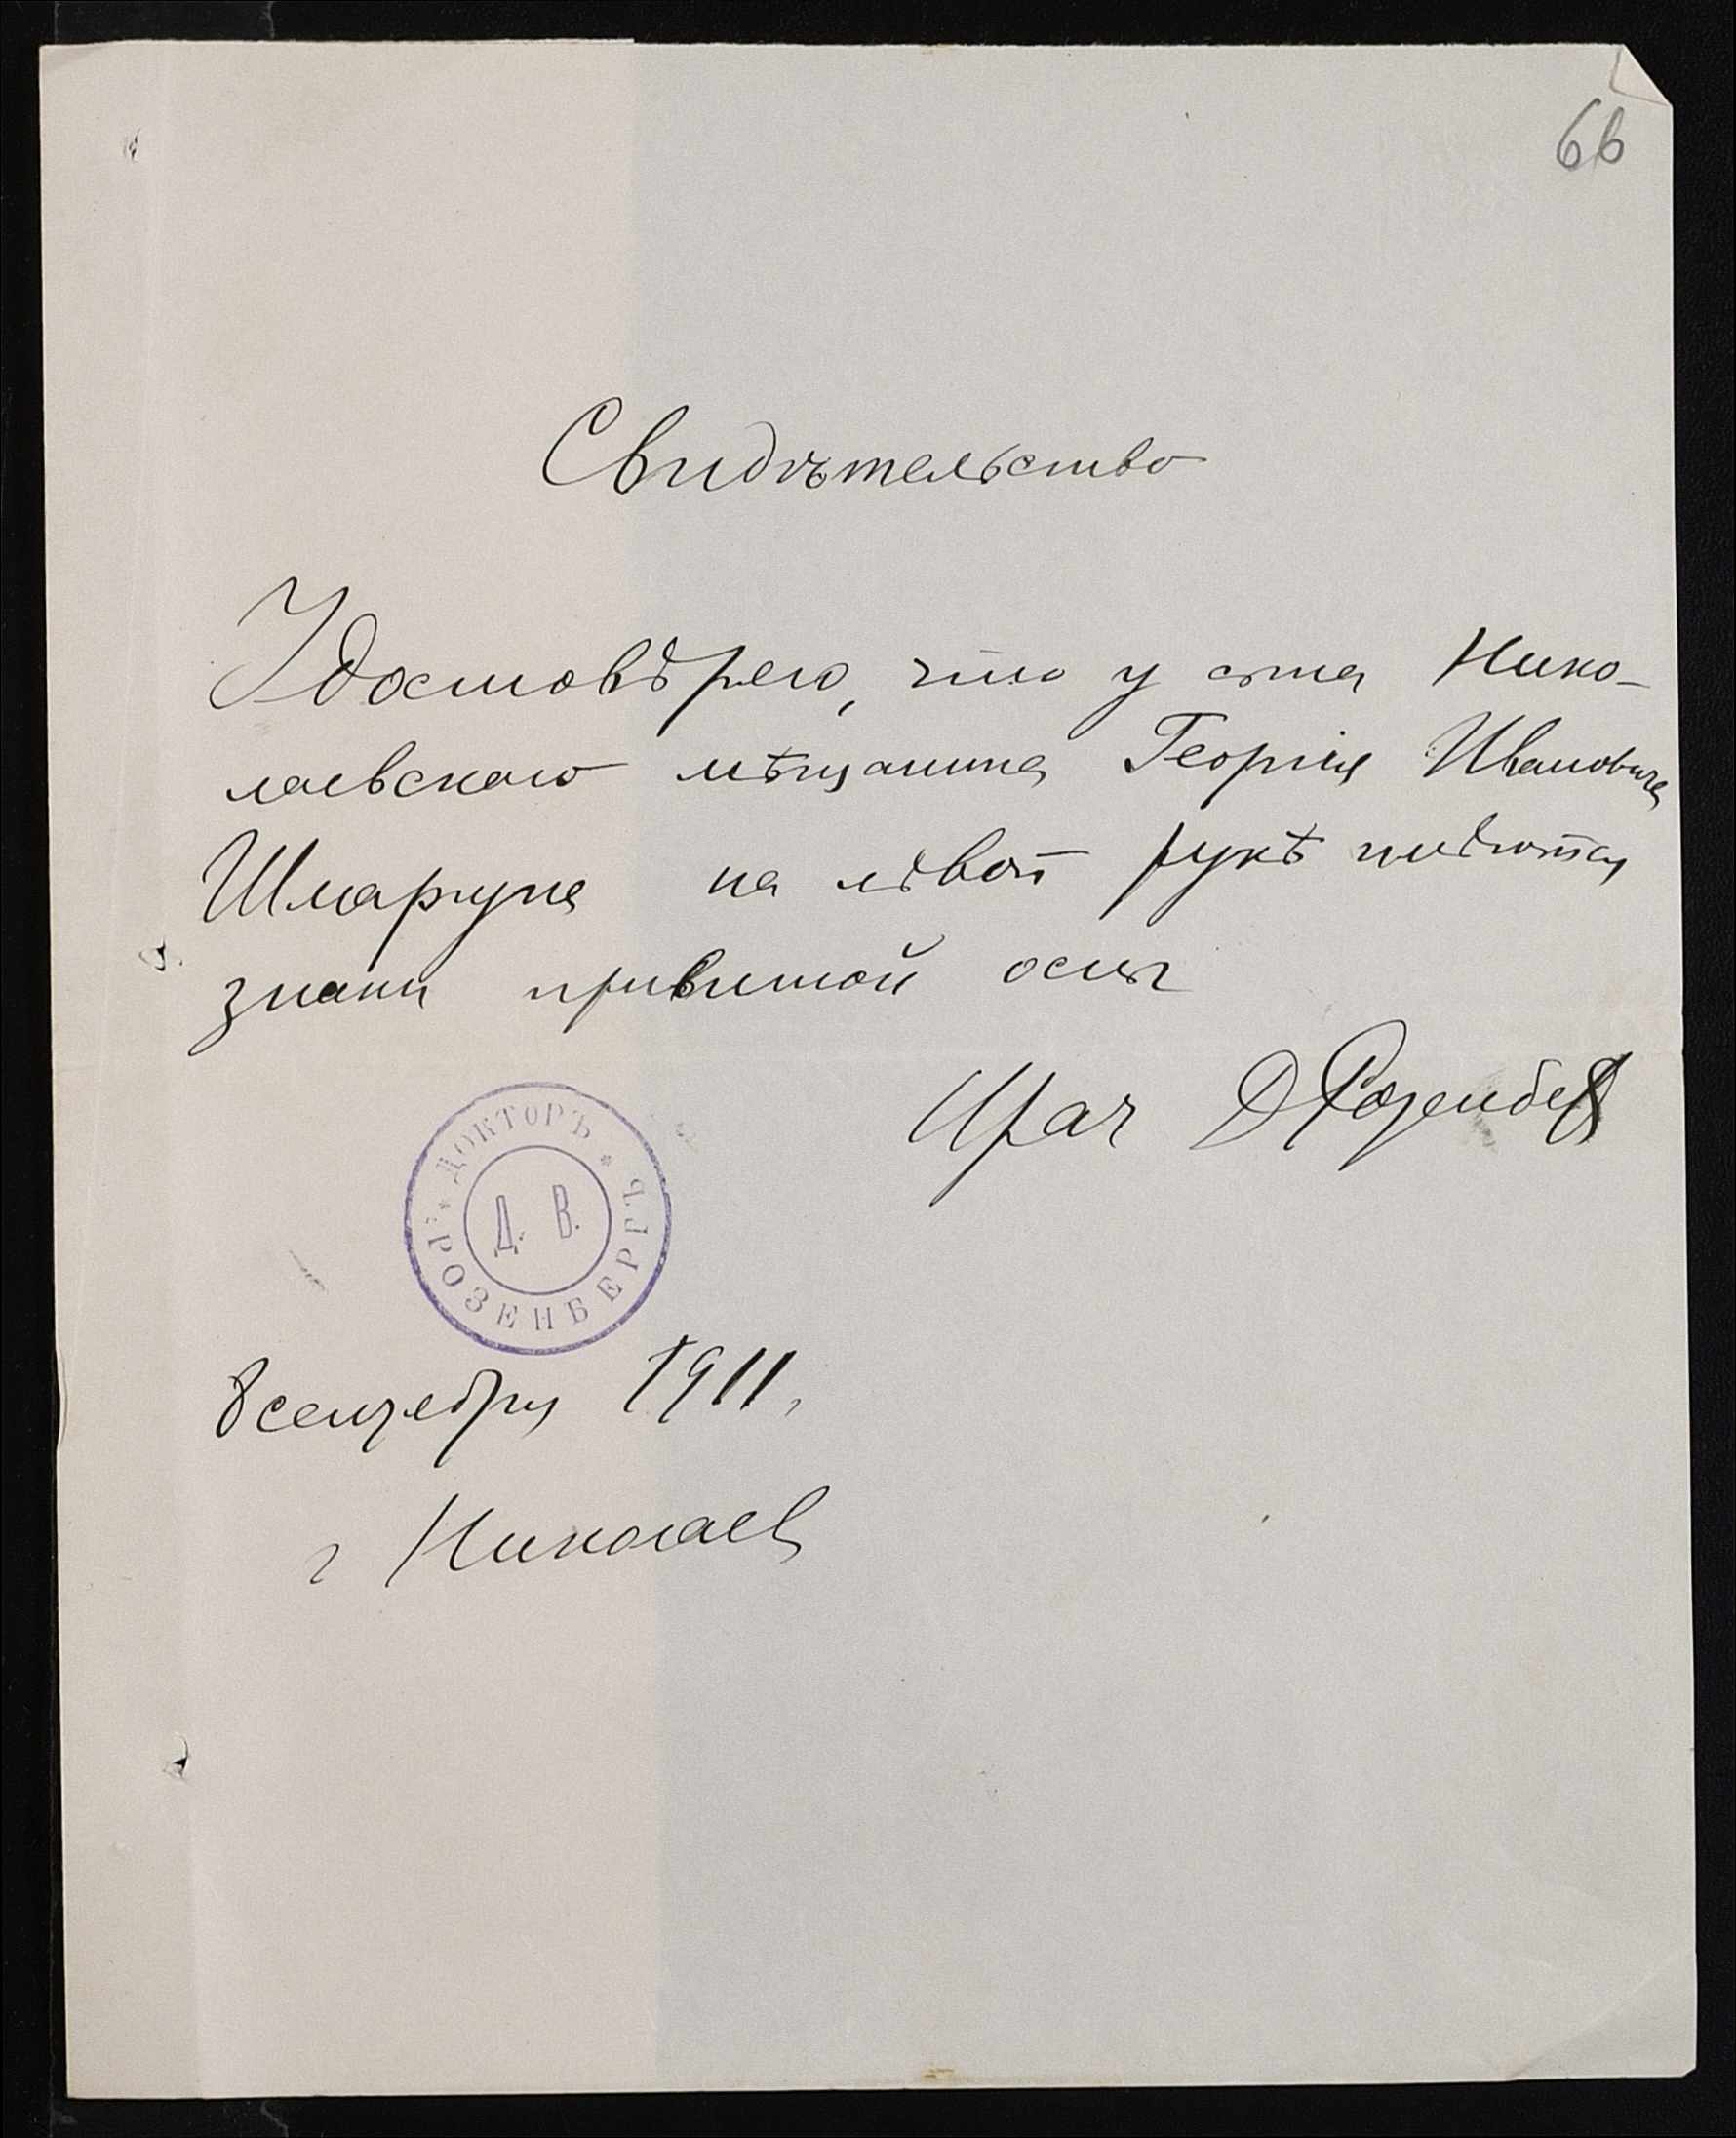 66
Свидѣтельство
Удостовѣряю, что у сына Нико-
лаевскаго мѣщанина Георгія Ивановича
на лѣвой рукѣ имѣются
знаки привитой оспы
Врач Д Розенберг
* ДОКТОРЪ *
Д. В.
РОЗЕНБЕРГЪ
8 сентября 1911,
г Николаев